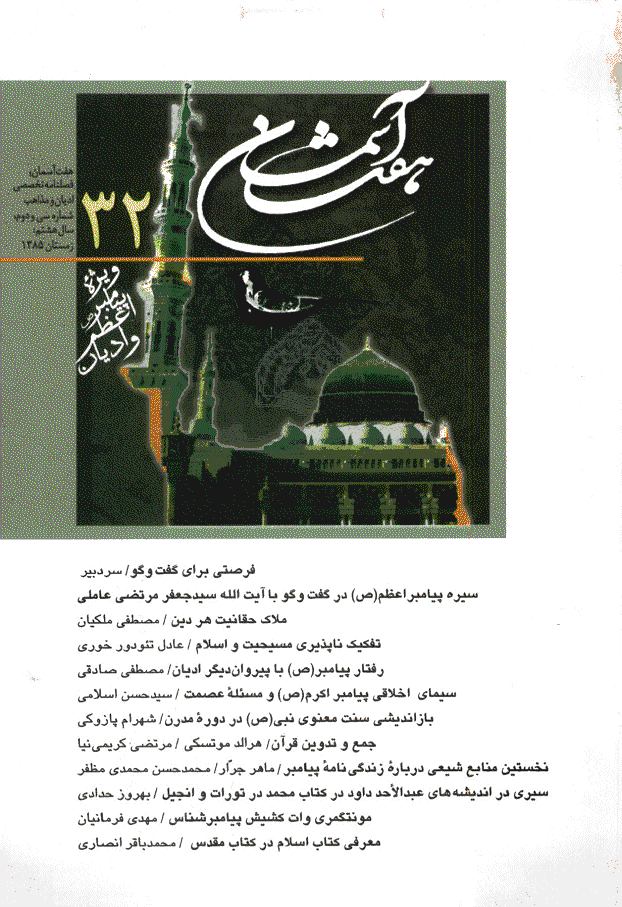 هفت آسمان
هفت آسمان،
فصلنامه تخصصی
ادیان و مذاهب
شماره سی و دوم،
سال هشتم،
زمستان ۱۳۸۵
۳۲
ویژهٔ
پیامبر
اعظم (ص)
و ادیان
فرصتی برای گفت و گو/ سردبیر
سیره پیامبر اعظم(ص) در گفت و گو با آیت الله سیدجعفر مرتضی عاملی
ملاک حقانیت هر دین / مصطفی ملکیان
تفکیک ناپذیری مسیحیت و اسلام / عادل تئودور خوری
رفتار پیامبر(ص) با پیروان دیگر ادیان/ مصطفی صادقی
سیمای اخلاقی پیامبر اکرم(ص) و مسئلهٔ عصمت / سیدحسن اسلامی
بازاندیشی سنت معنوی نبی(ص) در دورهٔ مدرن/ شهرام پازوکی
جمع و تدوین قرآن/ هرالد موتسکی / مرتضی کریمی‌نیا
نخستین منابع شیعی دربارهٔ زندگی نامهٔ پیامبر / ماهر جرّار/ محمدحسن محمدی مظفر
سیری در اندیشه های عبدالأحد داود در کتاب محمد در تورات و انجیل / بهروز حدادی
مونتگمری وات کشیش پیامبرشناس / مهدی فرمانیان
معرفی کتاب اسلام در کتاب مقدس / محمدباقر انصاری